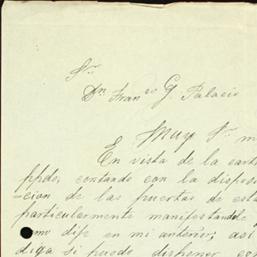 Sr.
Dn. Franco G. Palacio
Muy Sr. m
En vista de la carta
ppdo, contando con la dispos
cion de las puertas de esta
particularmente manifestando
como dije en mi anterior; asi
diga si puedo disponer con